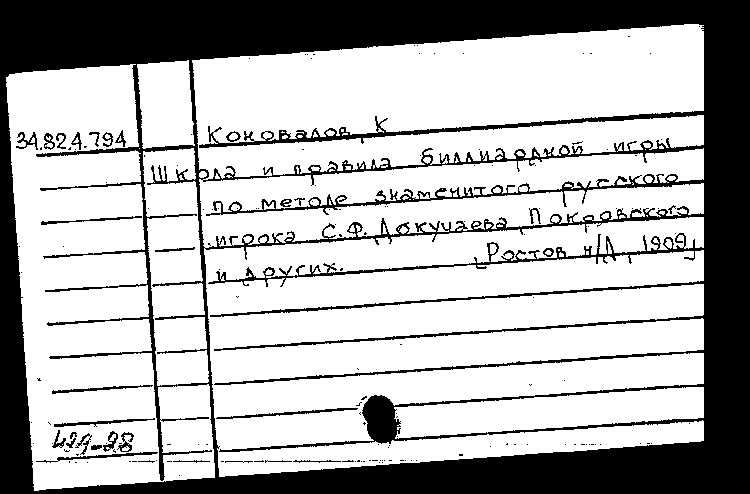 34.82.4.794 Коновалов, К
Школа и правила биллиардной игры
по методе знаменитого русского
игрока С.Ф. Докучаева, Покровского
и других. [Ростов н/Д, 1909]